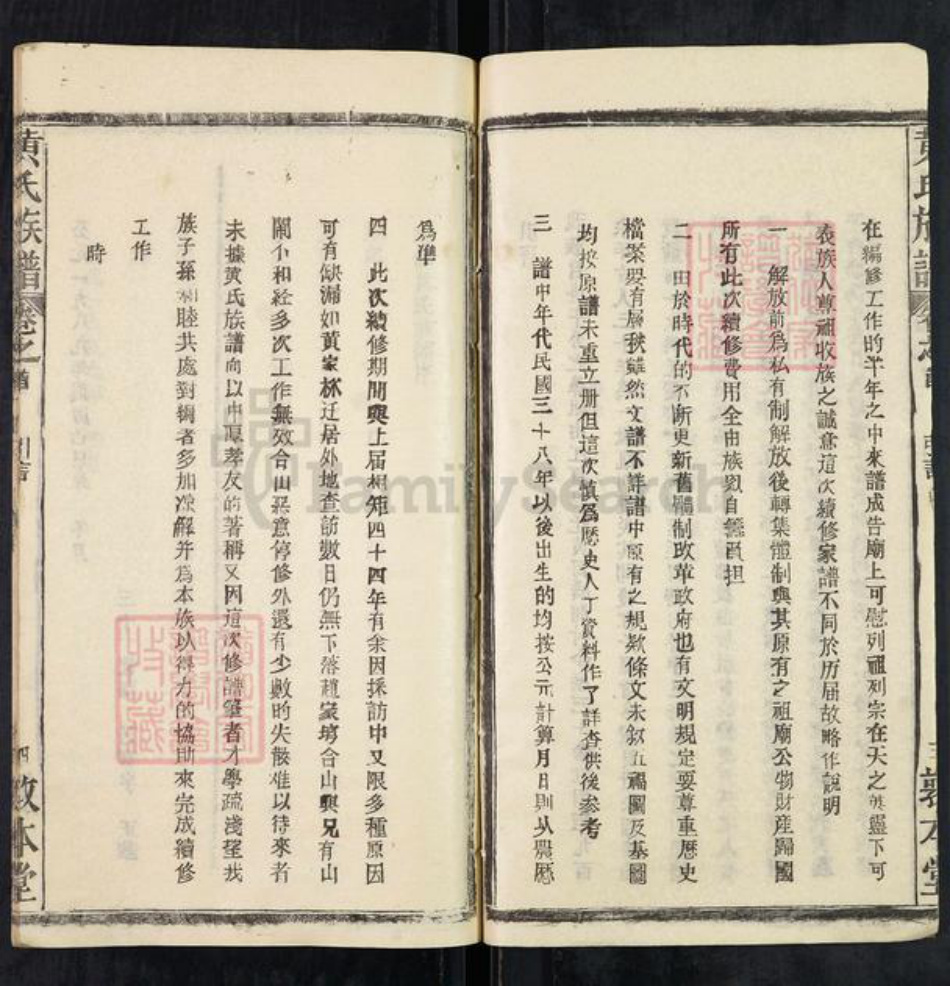 黃氏族譜
在編修工作的半年之中來譜成告廟上可慰列祖列宗在天之英靈下可
表族人尊祖收族之誠意這次續修家譜不同於历届故略作說明
一 解放前爲私有制解放後轉集體制與其原有之祖廟公物財產歸國
所有此次續修費用全由族
自
負担
二 由於時代的不断更新舊體制改革政府也有文明規定要尊重歷史
檔案要有層秩雖然文譜不詳譜中原有之規欵條文未叙五福圖及基圖
均按原譜未重立册但這次慎爲歷史人丁資料作了詳查供後参考
三 譜中年代民國三十八年以後出生的均按公元計算月日則从農歷
三 敦本堂
爲準
四 此次續修期間與上届相矩四十四年有余因採訪中又限多種原因
可有缺漏如黃家林迁居外地查訪數日仍無下落趙家塆合山與兄有山
鬧不和経多次工作無效合山惡意停修外還有少數的失散难以待來者
未據黃氏族譜向以中厚孝友的著稱又因這次修譜筆者才學疏淺望我
族子孫和睦共處對輯者多加諒解并爲本族以得力的協助來完成續修
工作
時
黃氏族譜
卷之一 譜
引言
四 敦本堂
FamilySearch